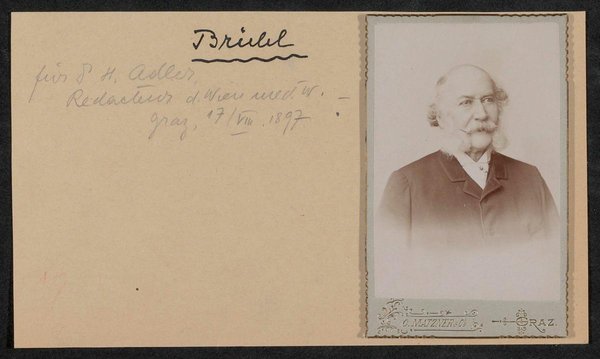 Brühl
für D H. Adler,
Redacteur d. Wien. med. W.
Graz, 17/VIII. 1897
GRAZ.